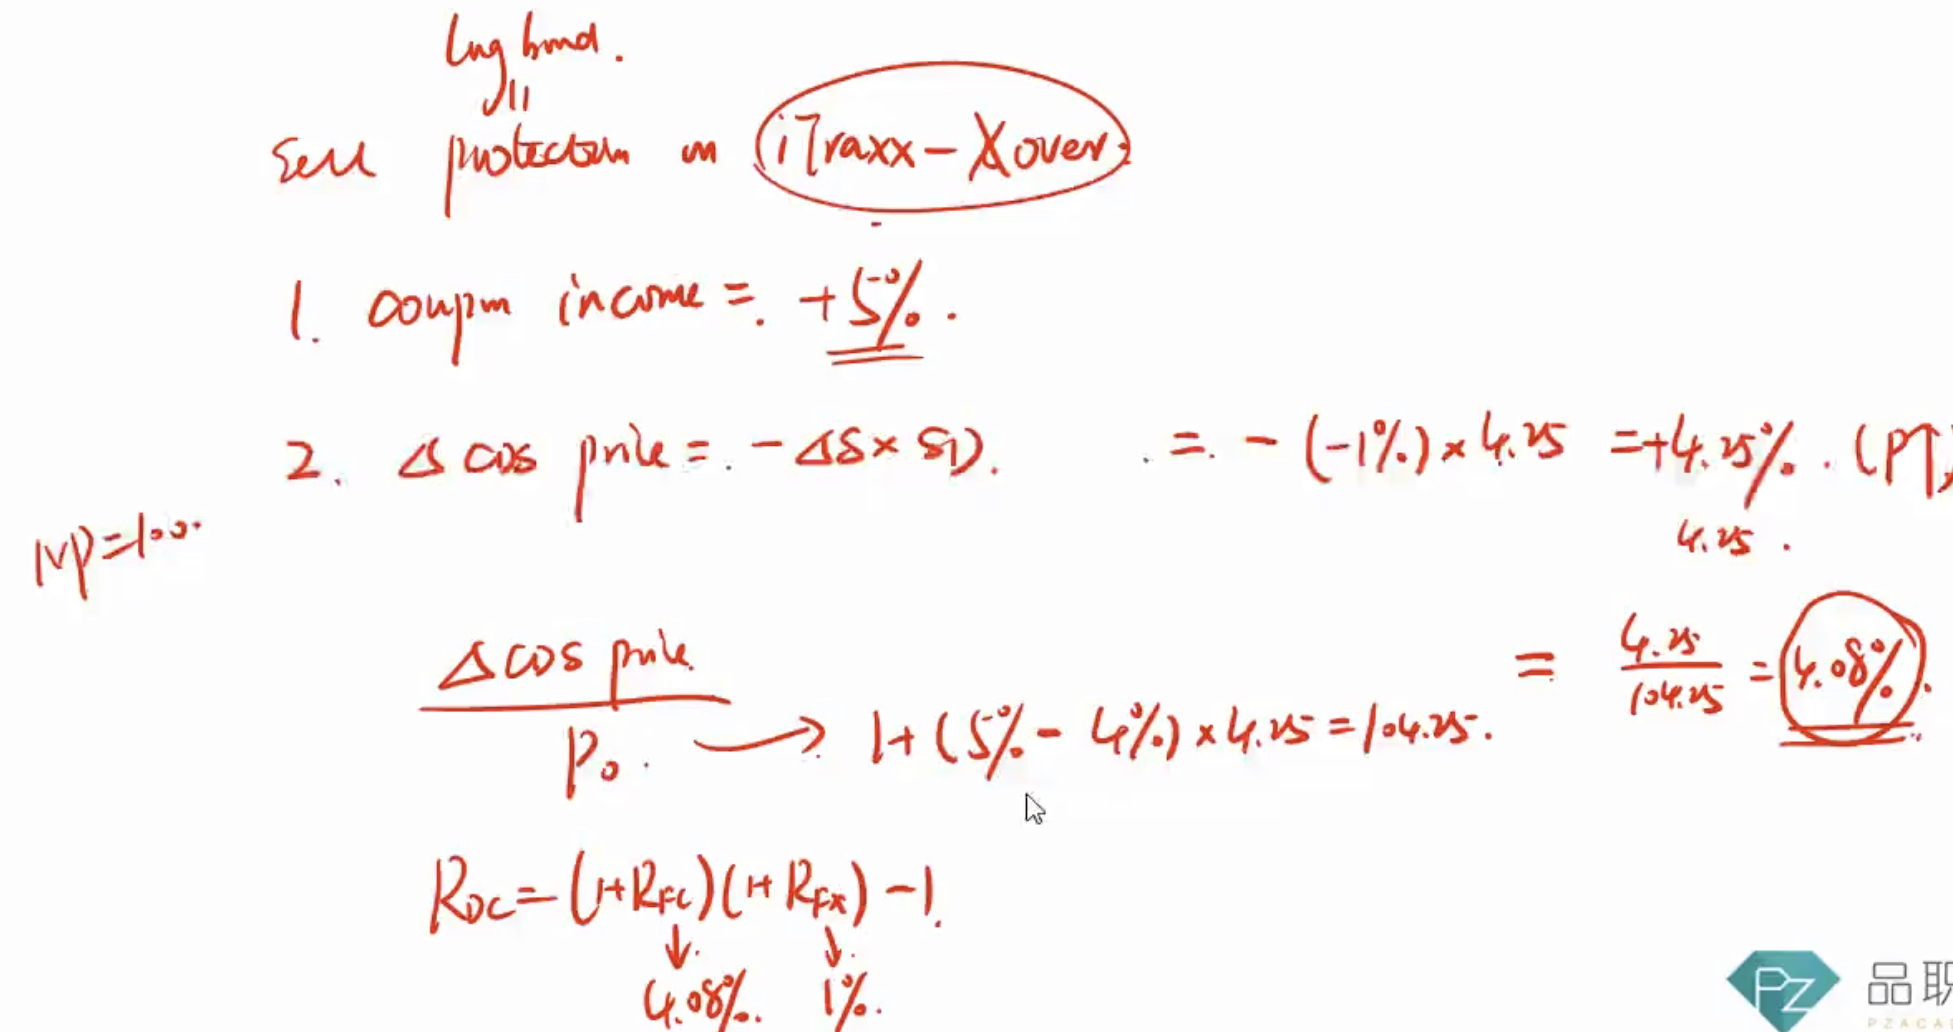 Long bond.
Sell protection on iTraxx-Xover.
1. coupon income = +5%.
2. Δ CDS price = -ΔS × SD. = -(-1%) × 4.25 = +4.25%. (P↑)
4.25.
NP=100.
Δ CDS price
P₀. → 1+(5%-4%)×4.25=104.25. = 4.25/104.25 = 4.08%.
R_DC=(1+R_FC)(1+R_FX)-1.
↓ ↓
4.08%. 1%.
PZ 品职
PZACA